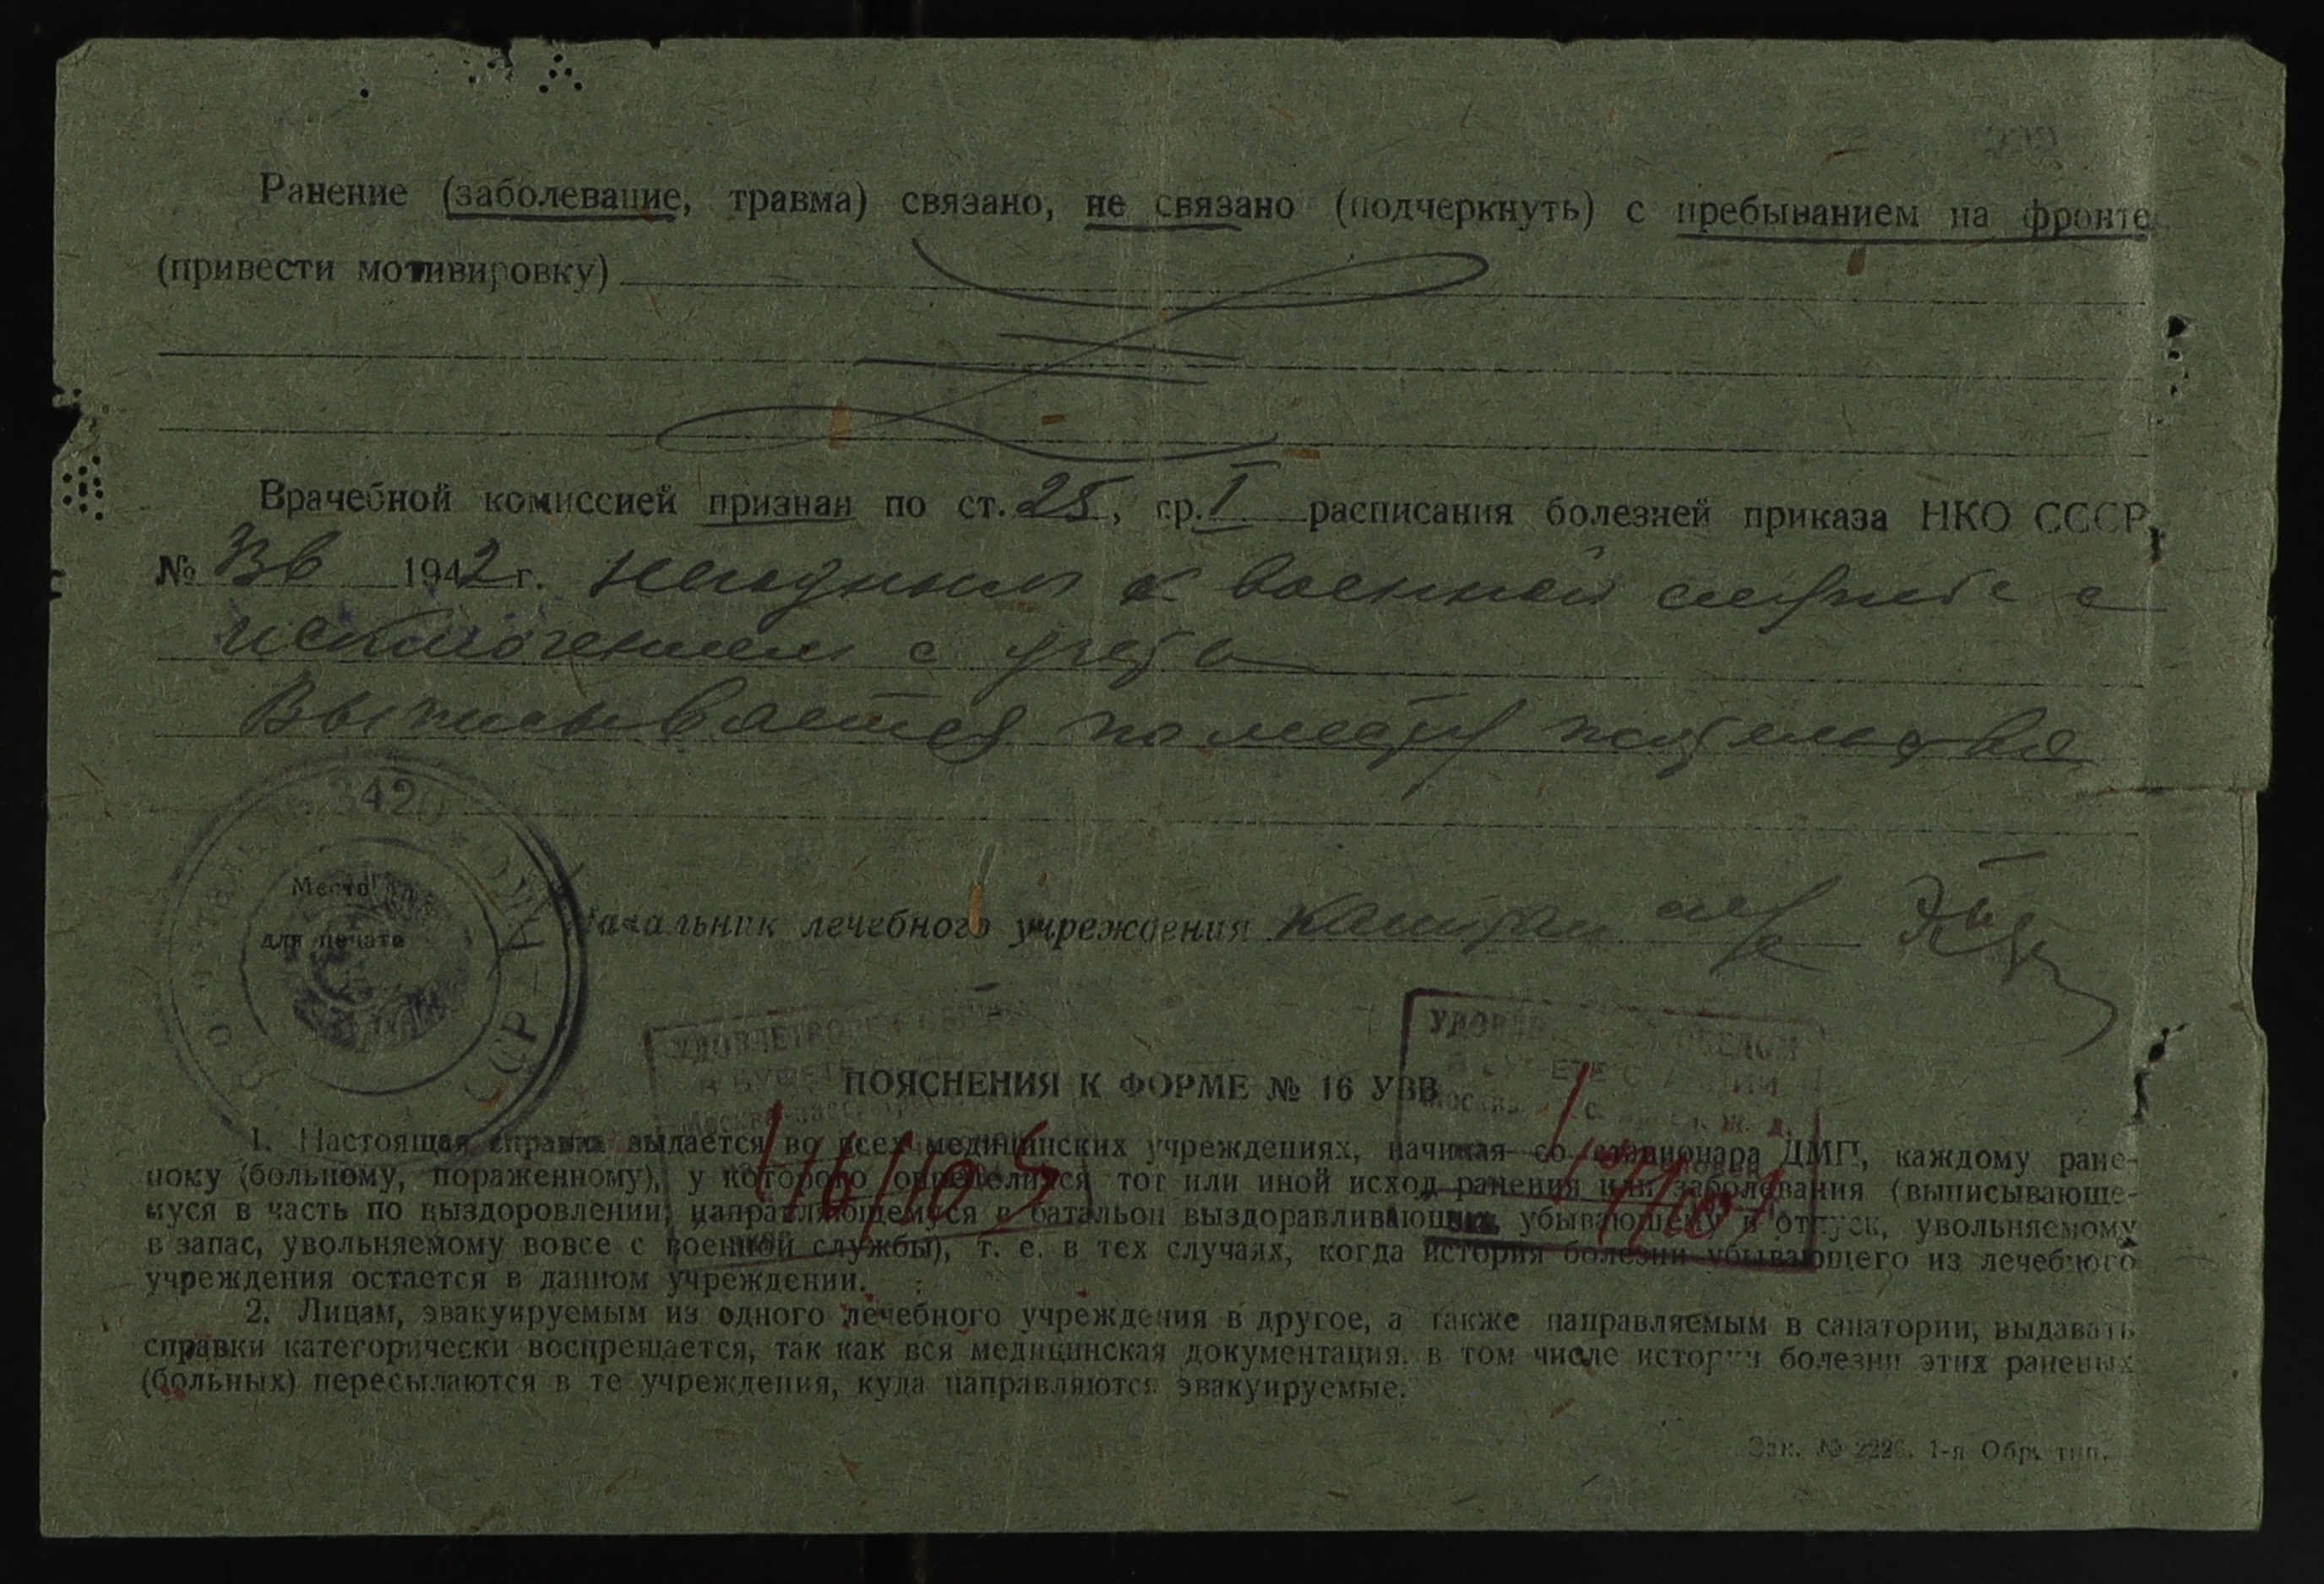 Ранение (заболевание, травма) связано, не связано (подчеркнуть) с пребыванием на фронте
(привести мотивировку)
Врачебной комиссией признан по ст. 25, гр. I расписания болезней приказа НКО СССР,
№ 336 1942 г. негодным к военной службе с
исключением с учета
Выписывается по месту жительства
342
Место
для печати
Начальник лечебного учреждения Капитан м/с
УДОВЛЕТВОРЕН ОБЕДОМ
В БУФЕТЕ
ОБЕДОМ
В БУФЕТЕ
Москва
ПОЯСНЕНИЯ К ФОРМЕ № 16 УВВ
1. Настоящая справка выдается во всех медицинских учреждениях, начиная со стационара ДМП, каждому ране-
ному (больному, пораженному), у которого определился тот или иной исход ранения или заболевания (выписывающе-
муся в часть по выздоровлении, направляющемуся в батальон выздоравливающих, убывающему в отпуск, увольняемому
в запас, увольняемому вовсе с военной службы), т. е. в тех случаях, когда история болезни убывающего из лечебного
учреждения остается в данном учреждении.
2. Лицам, эвакуируемым из одного лечебного учреждения в другое, а также направляемым в санатории, выдавать
справки категорически воспрещается, так как вся медицинская документация, в том числе истории болезни этих раненых
(больных) пересылаются в те учреждения, куда направляются эвакуируемые.
Зак. № 2226. 1-я Обр. тип.